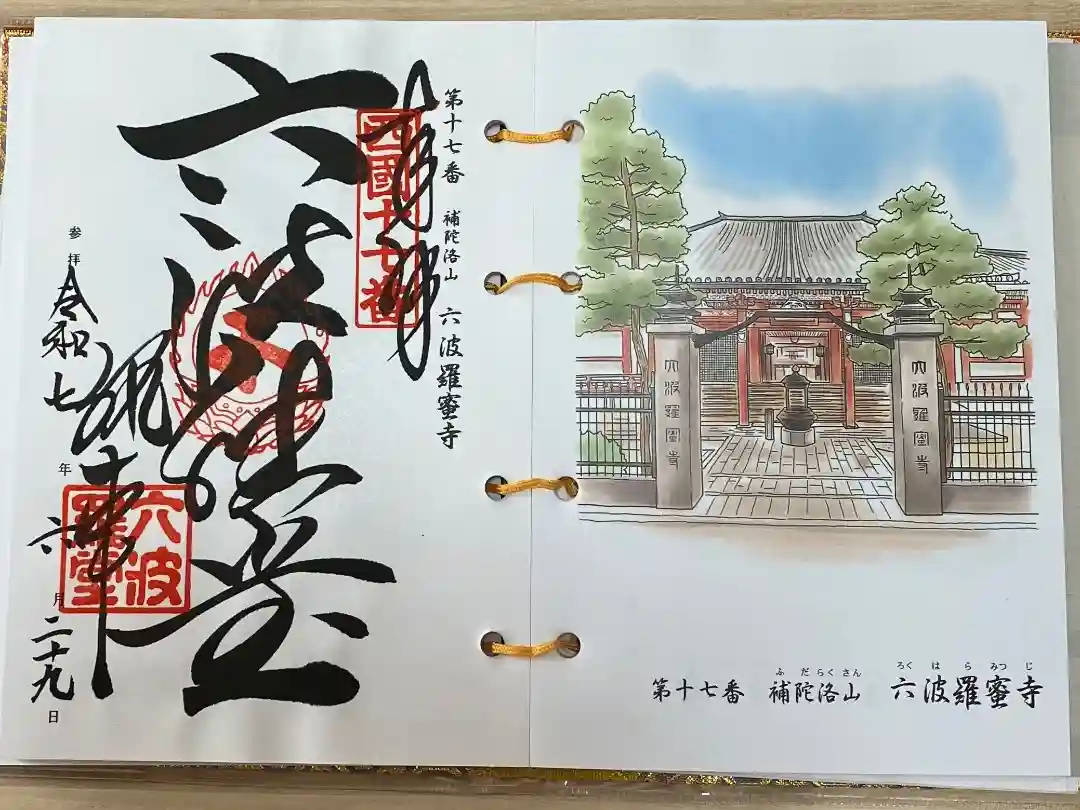 第十七番 補陀洛山 六波羅蜜寺
奉拝
西國十七番
六波羅堂
六波羅堂
参拝 令和七年六月二十九日
六波羅蜜寺
六波羅蜜寺
ふだらくさん ろくはらみつじ
第十七番 補陀洛山 六波羅蜜寺